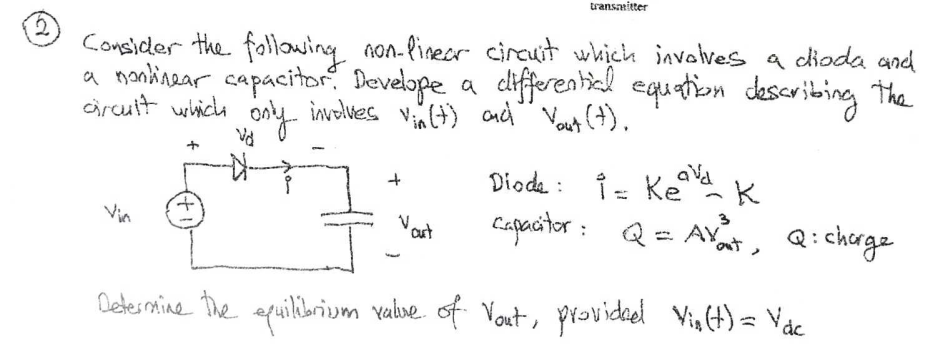 transmitter
(2) Consider the following non-linear circuit which involves a dioda and
a nonlinear capacitor. Develope a differential equation describing the
circuit which only involves Vin(t) and Vout(t).
+ Vd -
i
Vin
+
-
+
Vout
-
Diode: i = Ke^{aVd} - K
Capacitor: Q = AV^3_{out}, Q: charge
Determine the equilibrium value of Vout, provided Vin(t) = Vdc